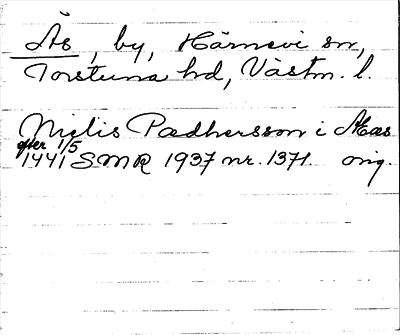 Ås, by, Härnevi sn,
Torstuna hd, Västm. l.
Niglis Pædhersson i Aas
efter 1/5
1441 SMR 1937 nr. 1371. orig.